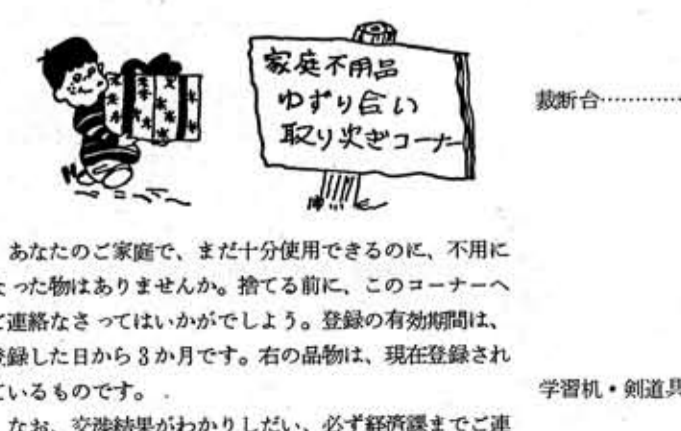 家庭不用品
ゆずり合い
取り次ぎコーナー
あなたのご家庭で、まだ十分使用できるのに、不用に
なった物はありませんか。捨てる前に、このコーナーへ
ご連絡なさってはいかがでしよう。登録の有効期間は、
登録した日から3か月です。右の品物は、現在登録され
ているものです。
なお、交渉結果がわかりしだい、必ず経済課までご連
裁断台…………
学習机・剣道具